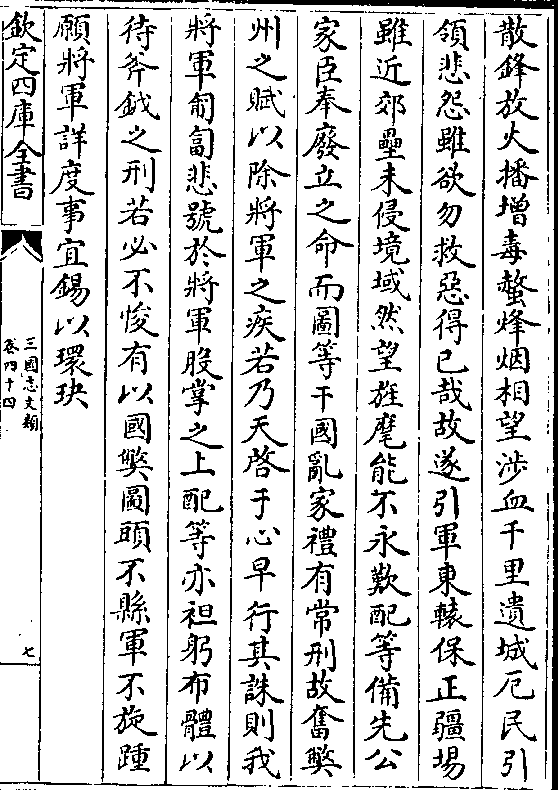 散鋒放火播增毒螫烽烟相望涉血千里遺城厄民引
領悲怨雖欲勿救惡得已哉故遂引軍東轅保正疆埸
雖近郊壘未侵境域然望旌麾能不永歎配等備先公
家臣奉廢立之命而圖等干國亂家禮有常刑故奮獘
州之賦以除將軍之疾若乃天啓于心早行其誅則我
將軍匍匐悲號於將軍股掌之上配等亦袒躬布體以
待斧鉞之刑若必不悛有以國獘圖頭不縣軍不旋踵
願將軍詳度事宜錫以環玦
欽定四庫全書
三國志文類
卷四十四
七